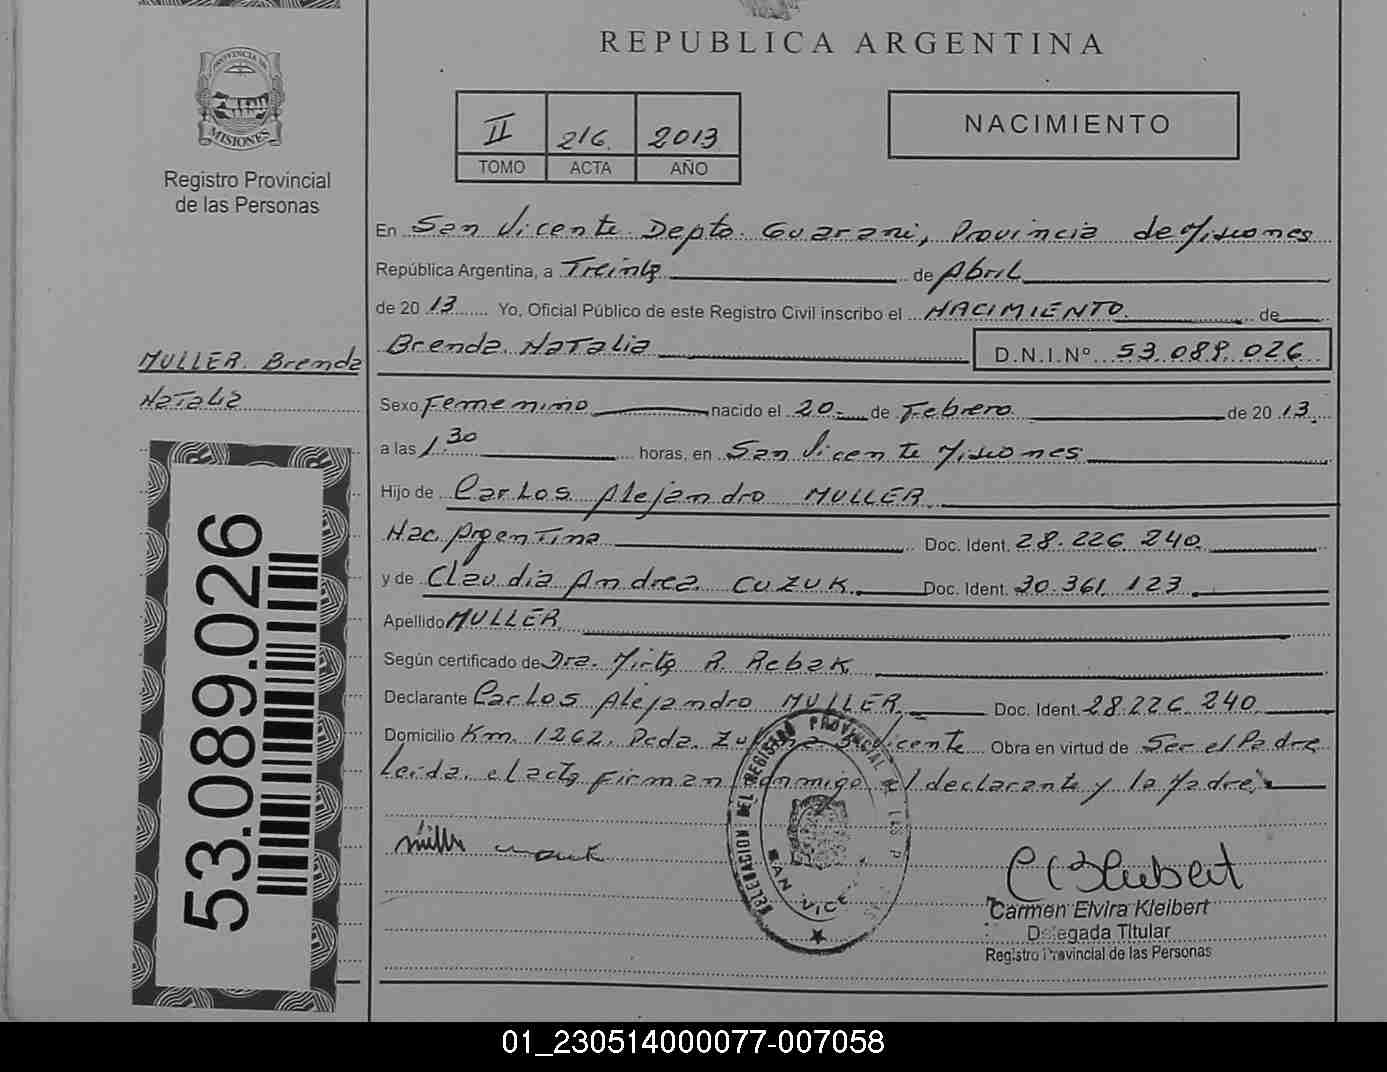 REPUBLICA ARGENTINA
PROVINCIA DE
MISIONES
Registro Provincial
de las Personas
II 216 2013
TOMO ACTA AÑO
NACIMIENTO
En San Vicente Depto. Guarani, Provincia de Misiones
República Argentina, a Treinta de Abril
de 2013 Yo, Oficial Público de este Registro Civil inscribo el NACIMIENTO de
Brenda Natalia D.N.I.Nº 53.089.026
MULLER Brenda
Natalia
Sexo Femenino nacido el 20 de Febrero de 2013
a las 1.30 horas, en San Vicente Misiones
Hijo de Carlos Alejandro MULLER
Nac. Argentina Doc. Ident. 28.226.240
y de Claudia Andrea CUZUK Doc. Ident. 30.361.123
Apellido MULLER
Según certificado de Dra. Mirta R. Rebak
Declarante Carlos Alejandro MULLER Doc. Ident. 28.226.240
Domicilio Km. 1262. Pcda. Vicente Obra en virtud de Ser el Padre
Leida el acta firman conmigo el declarante y la Madre,
53.089.026
DELEGACION DEL REGISTRO PROVINCIAL DE LAS P AS
SAN VICE
Carmen Elvira Kleibert
Delegada Titular
Registro Provincial de las Personas
01_230514000077-007058